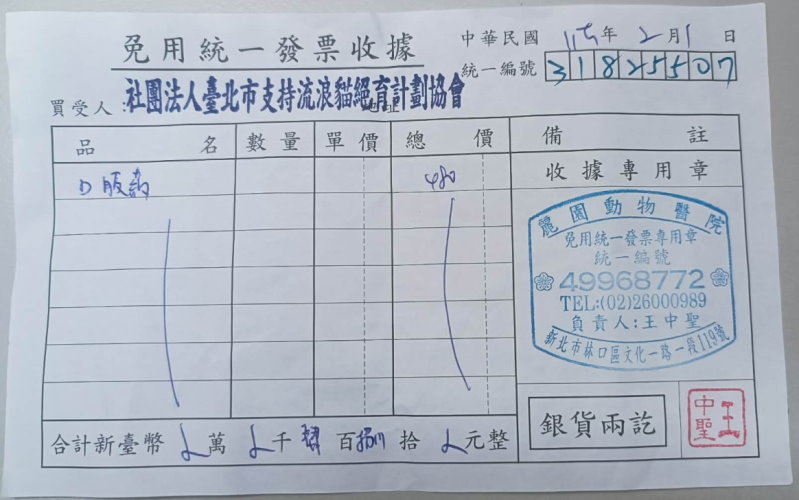 免用統一發票收據
中華民國 年 2月1日
統一編號 31825507
買受人：社團法人臺北市支持流浪貓絕育計劃協會
品名 數量 單價 總價 備註
480
收據專用章
麗園動物醫院
免用統一發票專用章
統一編號
49968772
TEL:(02)26000989
負責人:王中聖
新北市林口區文化一路一段119號
合計新臺幣 萬 千肆百捌拾 元整
銀貨兩訖
王中聖